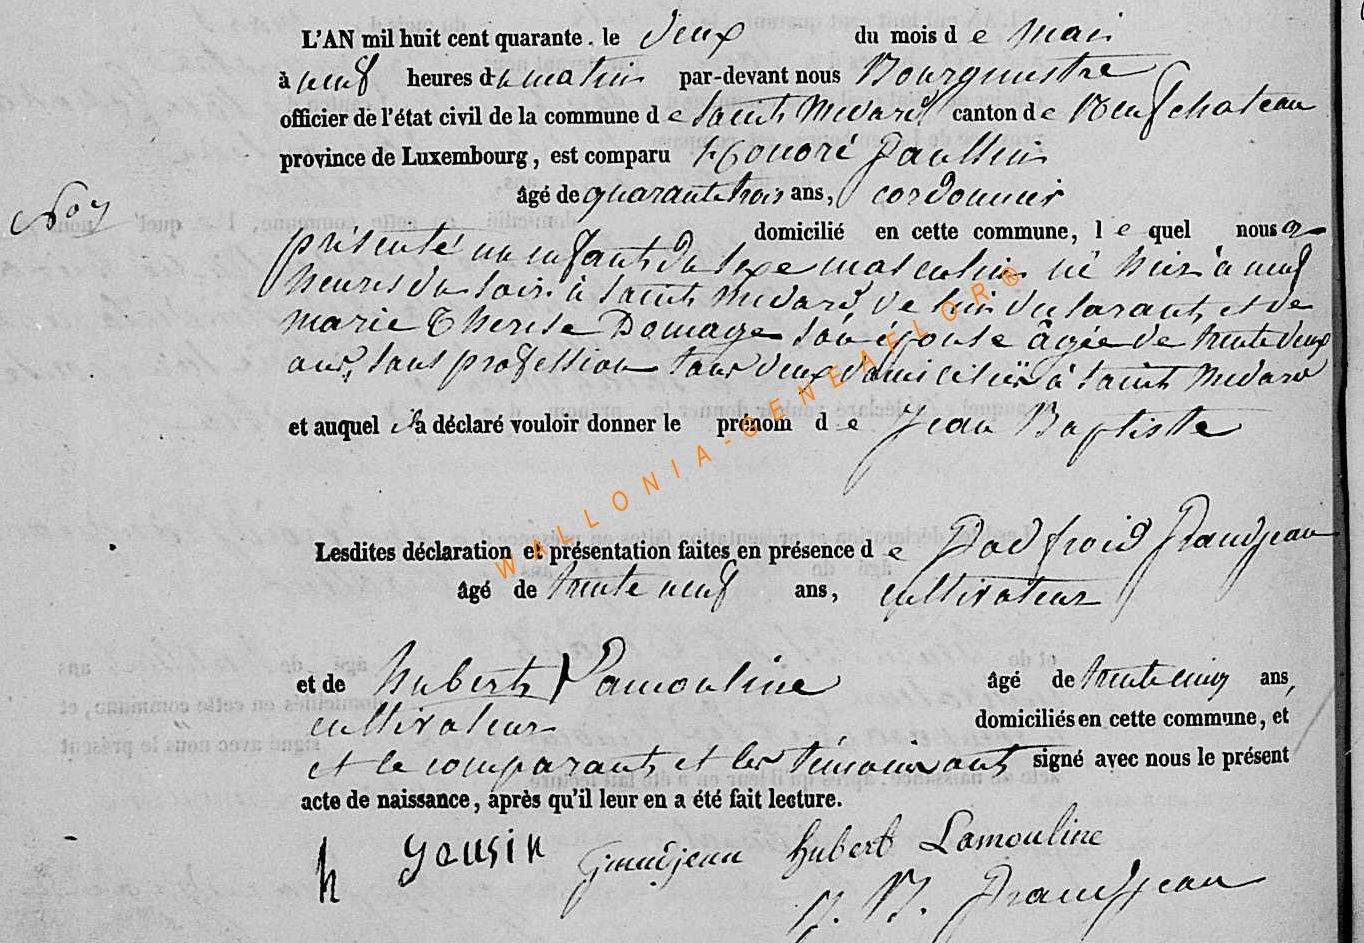 L'AN mil huit cent quarante. le deux du mois d e mai
à neuf heures du matin par-devant nous Bourgmestre
officier de l'état civil de la commune d e Saint Medard canton d e Neufchateau
province de Luxembourg, est comparu Honoré
âgé de quarante trois ans, cordonnier
No 7
domicilié en cette commune, l e quel nous a
présenté un enfant du sexe masculin né hier à neuf
heures du soir à Saint Medard de lui declarant et de
Marie Therese Domage son épouse âgée de trente deux
ans, sans profession tous deux domiciliés à Saint Medard
et auquel il a déclaré vouloir donner le prénom d e Jean Baptiste
WALLONIA-GENEAFLOR®
Lesdites déclaration et présentation faites en présence d e Godfroid Grandjean
âgé de trente neuf ans, cultivateur
et de hubert Lamouline âgé de trente cinq ans,
cultivateur domiciliés en cette commune, et
et le comparant et les témoins ont signé avec nous le présent
acte de naissance, après qu'il leur en a été fait lecture.
h Grandjean hubert Lamouline
Grandjean